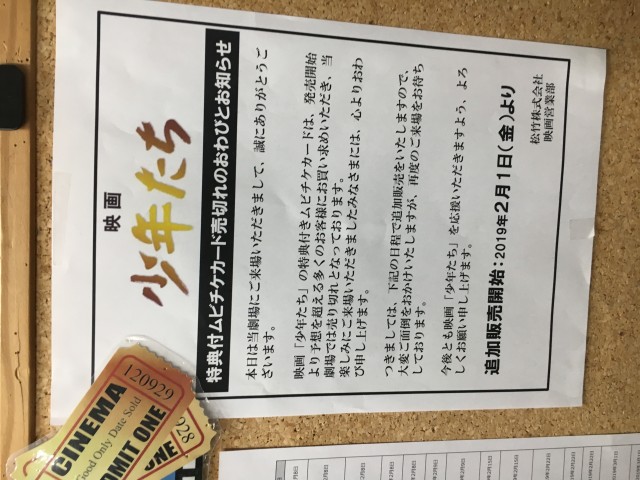 映画
少年たち
特典付ムビチケカード売切れのおわびとお知らせ
本日は当劇場にご来場いただきまして、誠にありがとうご
ざいます。
映画「少年たち」の特典付きムビチケカードは、発売開始
より予想を超える多くのお客様にお買い求めいただき、当
劇場では売り切れとなっております。
楽しみにご来場いただきましたみなさまには、心よりおわ
び申し上げます。
つきましては、下記の日程で追加販売をいたしますので、
大変ご面倒をおかけいたしますが、再度のご来場をお待ち
しております。
今後とも映画「少年たち」を応援いただきますよう、よろ
しくお願い申し上げます。
追加販売開始：2019年2月1日(金)より
松竹株式会社
映画営業部
120929
CINEMA
Good Only Date Sold
DMIT ONE
928
ONE